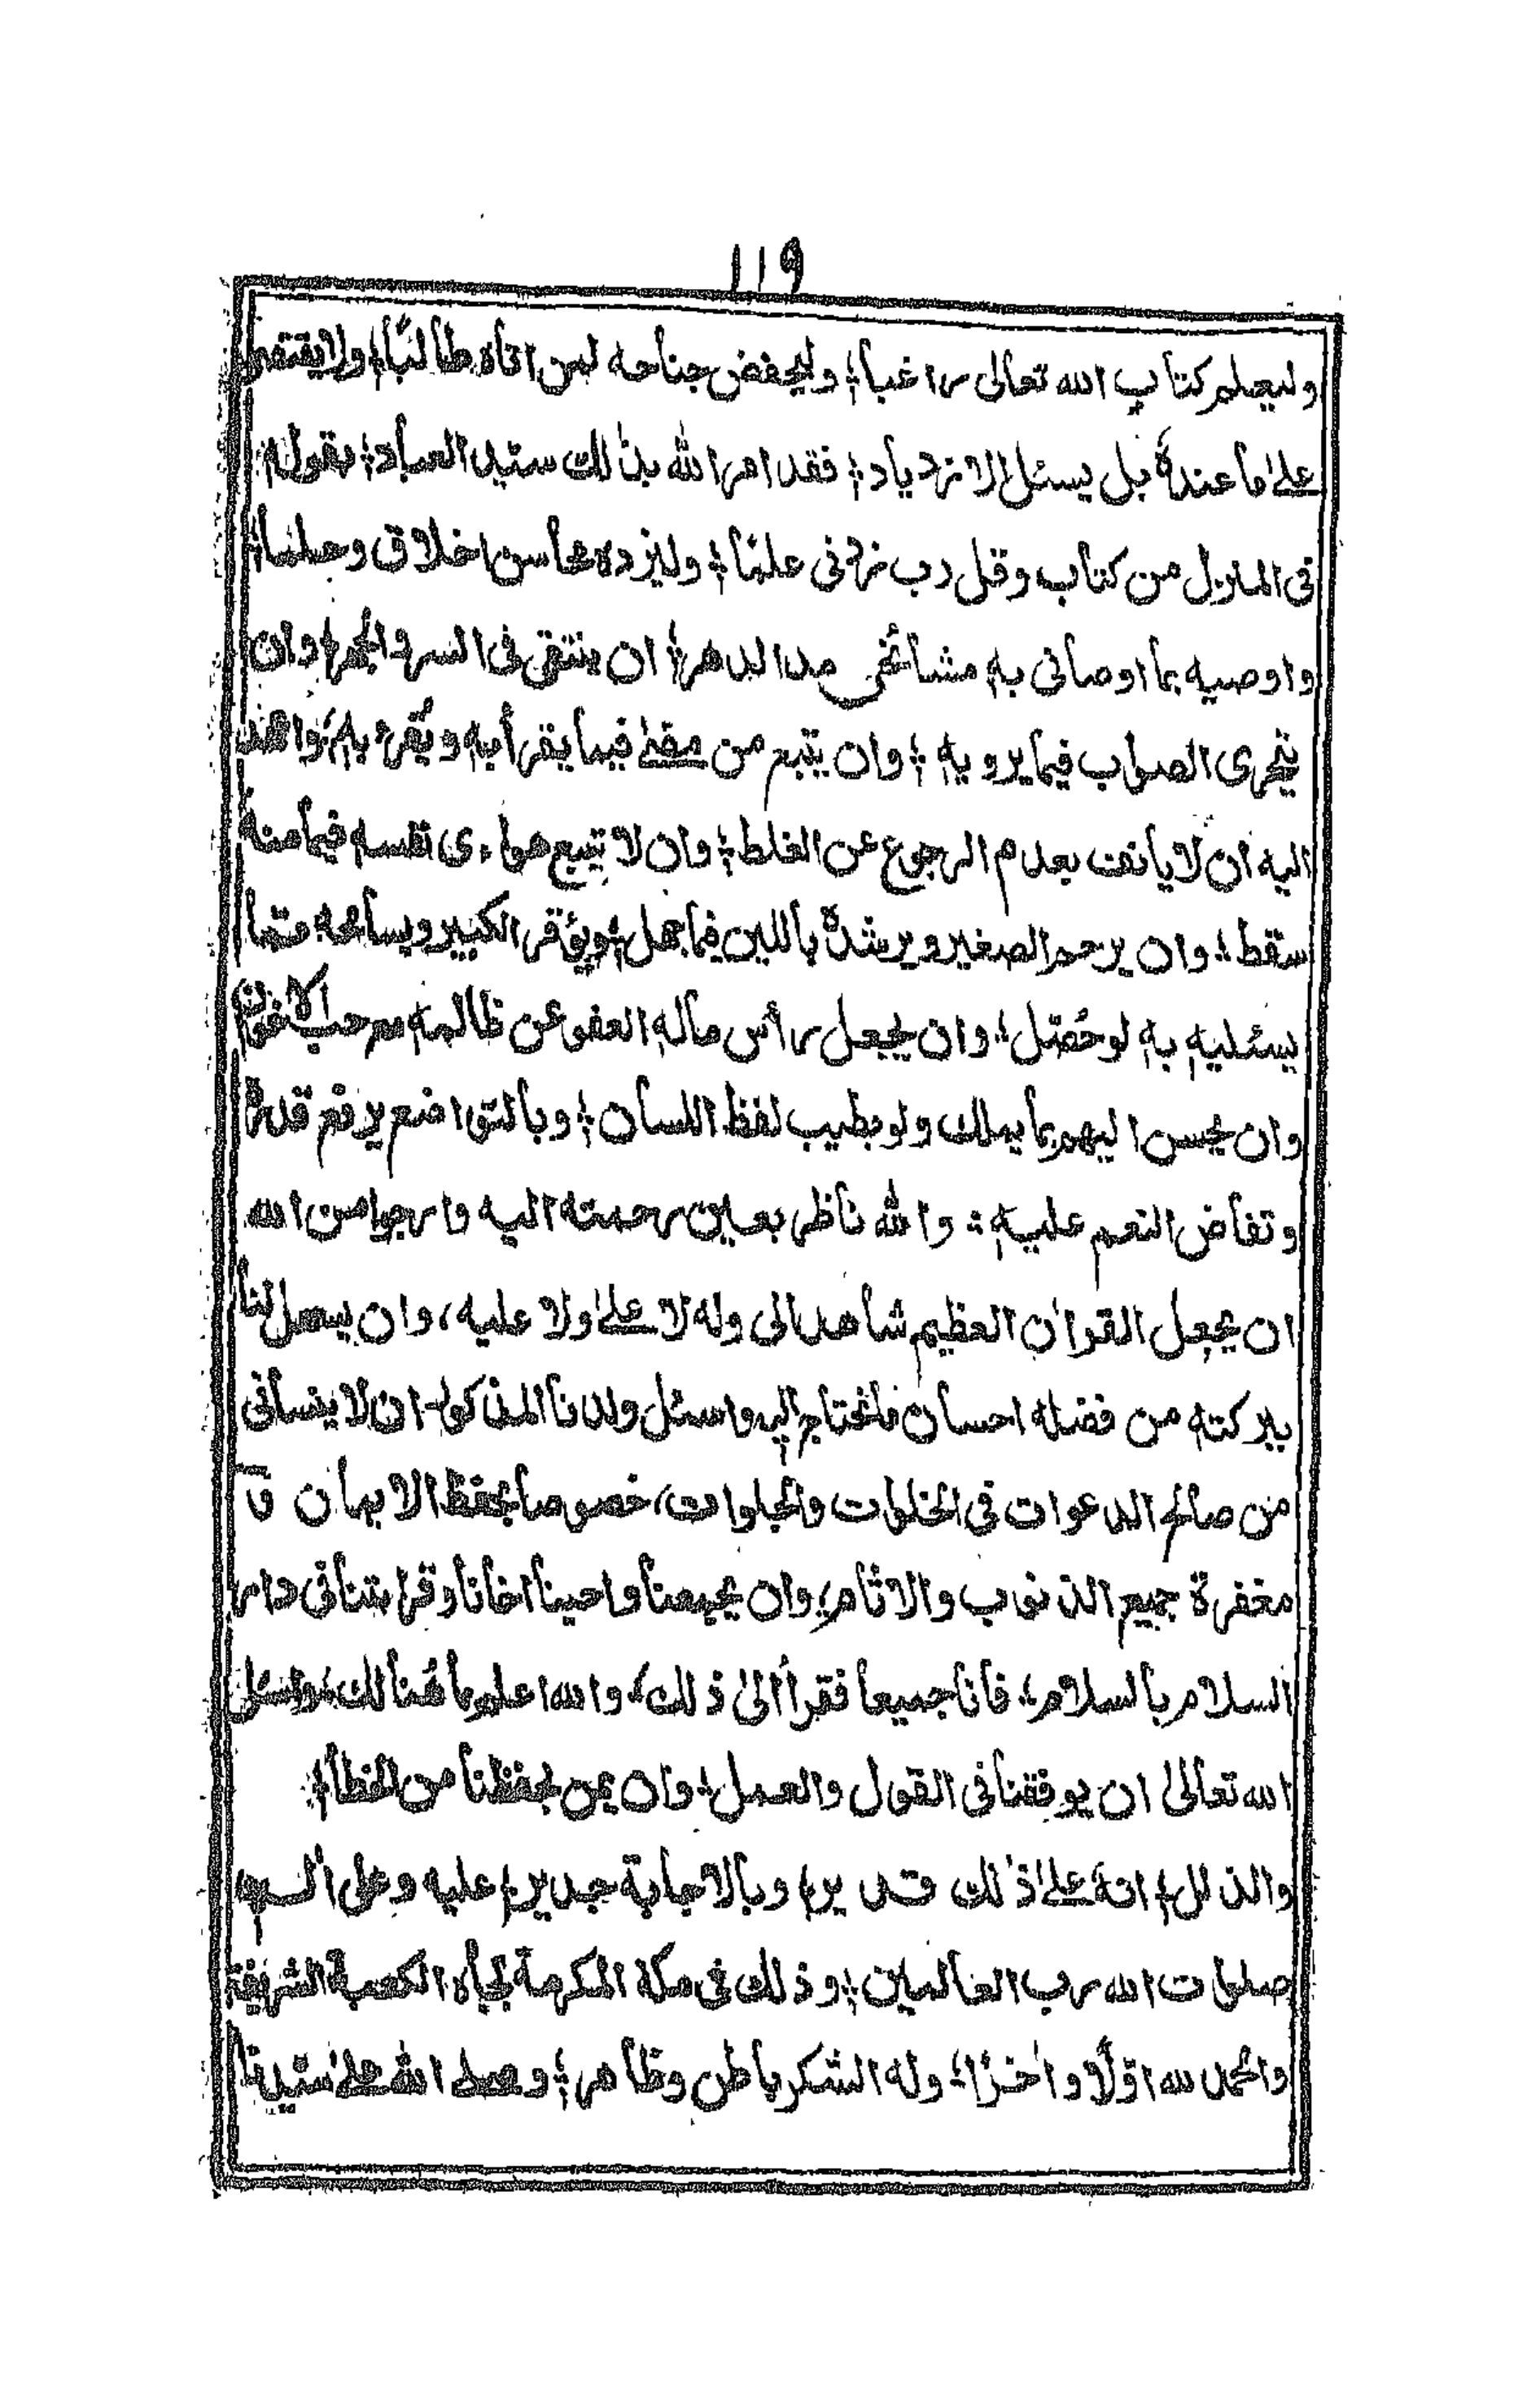 ١١٩
وليعلم كتاب الله تعالى راغبا؛ وليخفض جناحه لمن اتاه طالبًا؛ ولا يقتصر
علىٰ ما عندهٗ بل يسئل الازدياد؛ فقد امر الله بذٰلك سيد العباد؛ بقوله
فى المنزل من كتاب وقل رب زدنى علمًا؛ وليزده محاسن اخلاق وحلما؛
واوصيه بما اوصانى به مشائخى مدا الدهر؛ ان يتقى فى السر والجهر؛ وان
يتحرى الصواب فيما يرويه؛ وان يتبع من فيما يقرأ به ويُقرء به؛
اليه ان لا يأنف بعدم الرجوع عن الغلط؛ وان لا يتبع هواءى نفسه فيما منه
سقط؛ وان يرحم الصغير ويرشدهٗ باللين فيما جهل؛ ويؤقر الكبير ويسامحه
به لو حُصّل؛ وان يجعل رأس ماله العفو عن ظالمه مع حب الاخوان
وان يحسن اليهم بما يملك ولو بطيب لفظ اللسان؛ وبالتواضع يرفع قدره
وتفاض النعم عليه؛ والله ناظر بعين رحمته اليه وارجوا من الله
ان يجعل القراٰن العظيم شاهدا لى وله لا علىٰ ولا عليه، وان يسهل لنا
ببركته من فضله احسان ما نحتاج اليه واسئل ولدنا المذكور ان لا ينسانى
من صالح الدعوات فى الخلوات والجلوات، خصوصا بحفظ الايمان و
مغفرة جميع الذنوب والاثام؛ وان يجمعنا واحبنا اخانا وقرابتنا فى دار
السلام بالسلام؛ فانا جميعا فقرأ الىٰ ذلك؛ والله اعلم بما هُنالك؛ واسئل
الله تعالىٰ ان يوفقنا فى القول والعمل؛ وان يمن بحفظنا من الخطأ؛
والذلل؛ انهٗ علىٰ ذٰلك قدير؛ وبالاجابة جدير؛ عليه وعلى
صلوات الله رب العالمين؛ وذلك فى مكة المكرمة تجاه الكعبة الشريفة
والحمد لله اوّلًا واٰخرًا؛ وله الشكر باطن وظاهر؛ وصلى الله علىٰ سيدنا